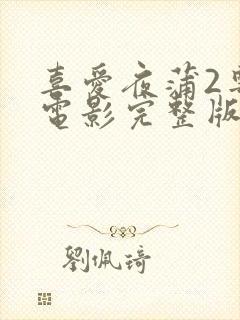 喜愛夜蒲2粵
電影完整版
劉佩琦